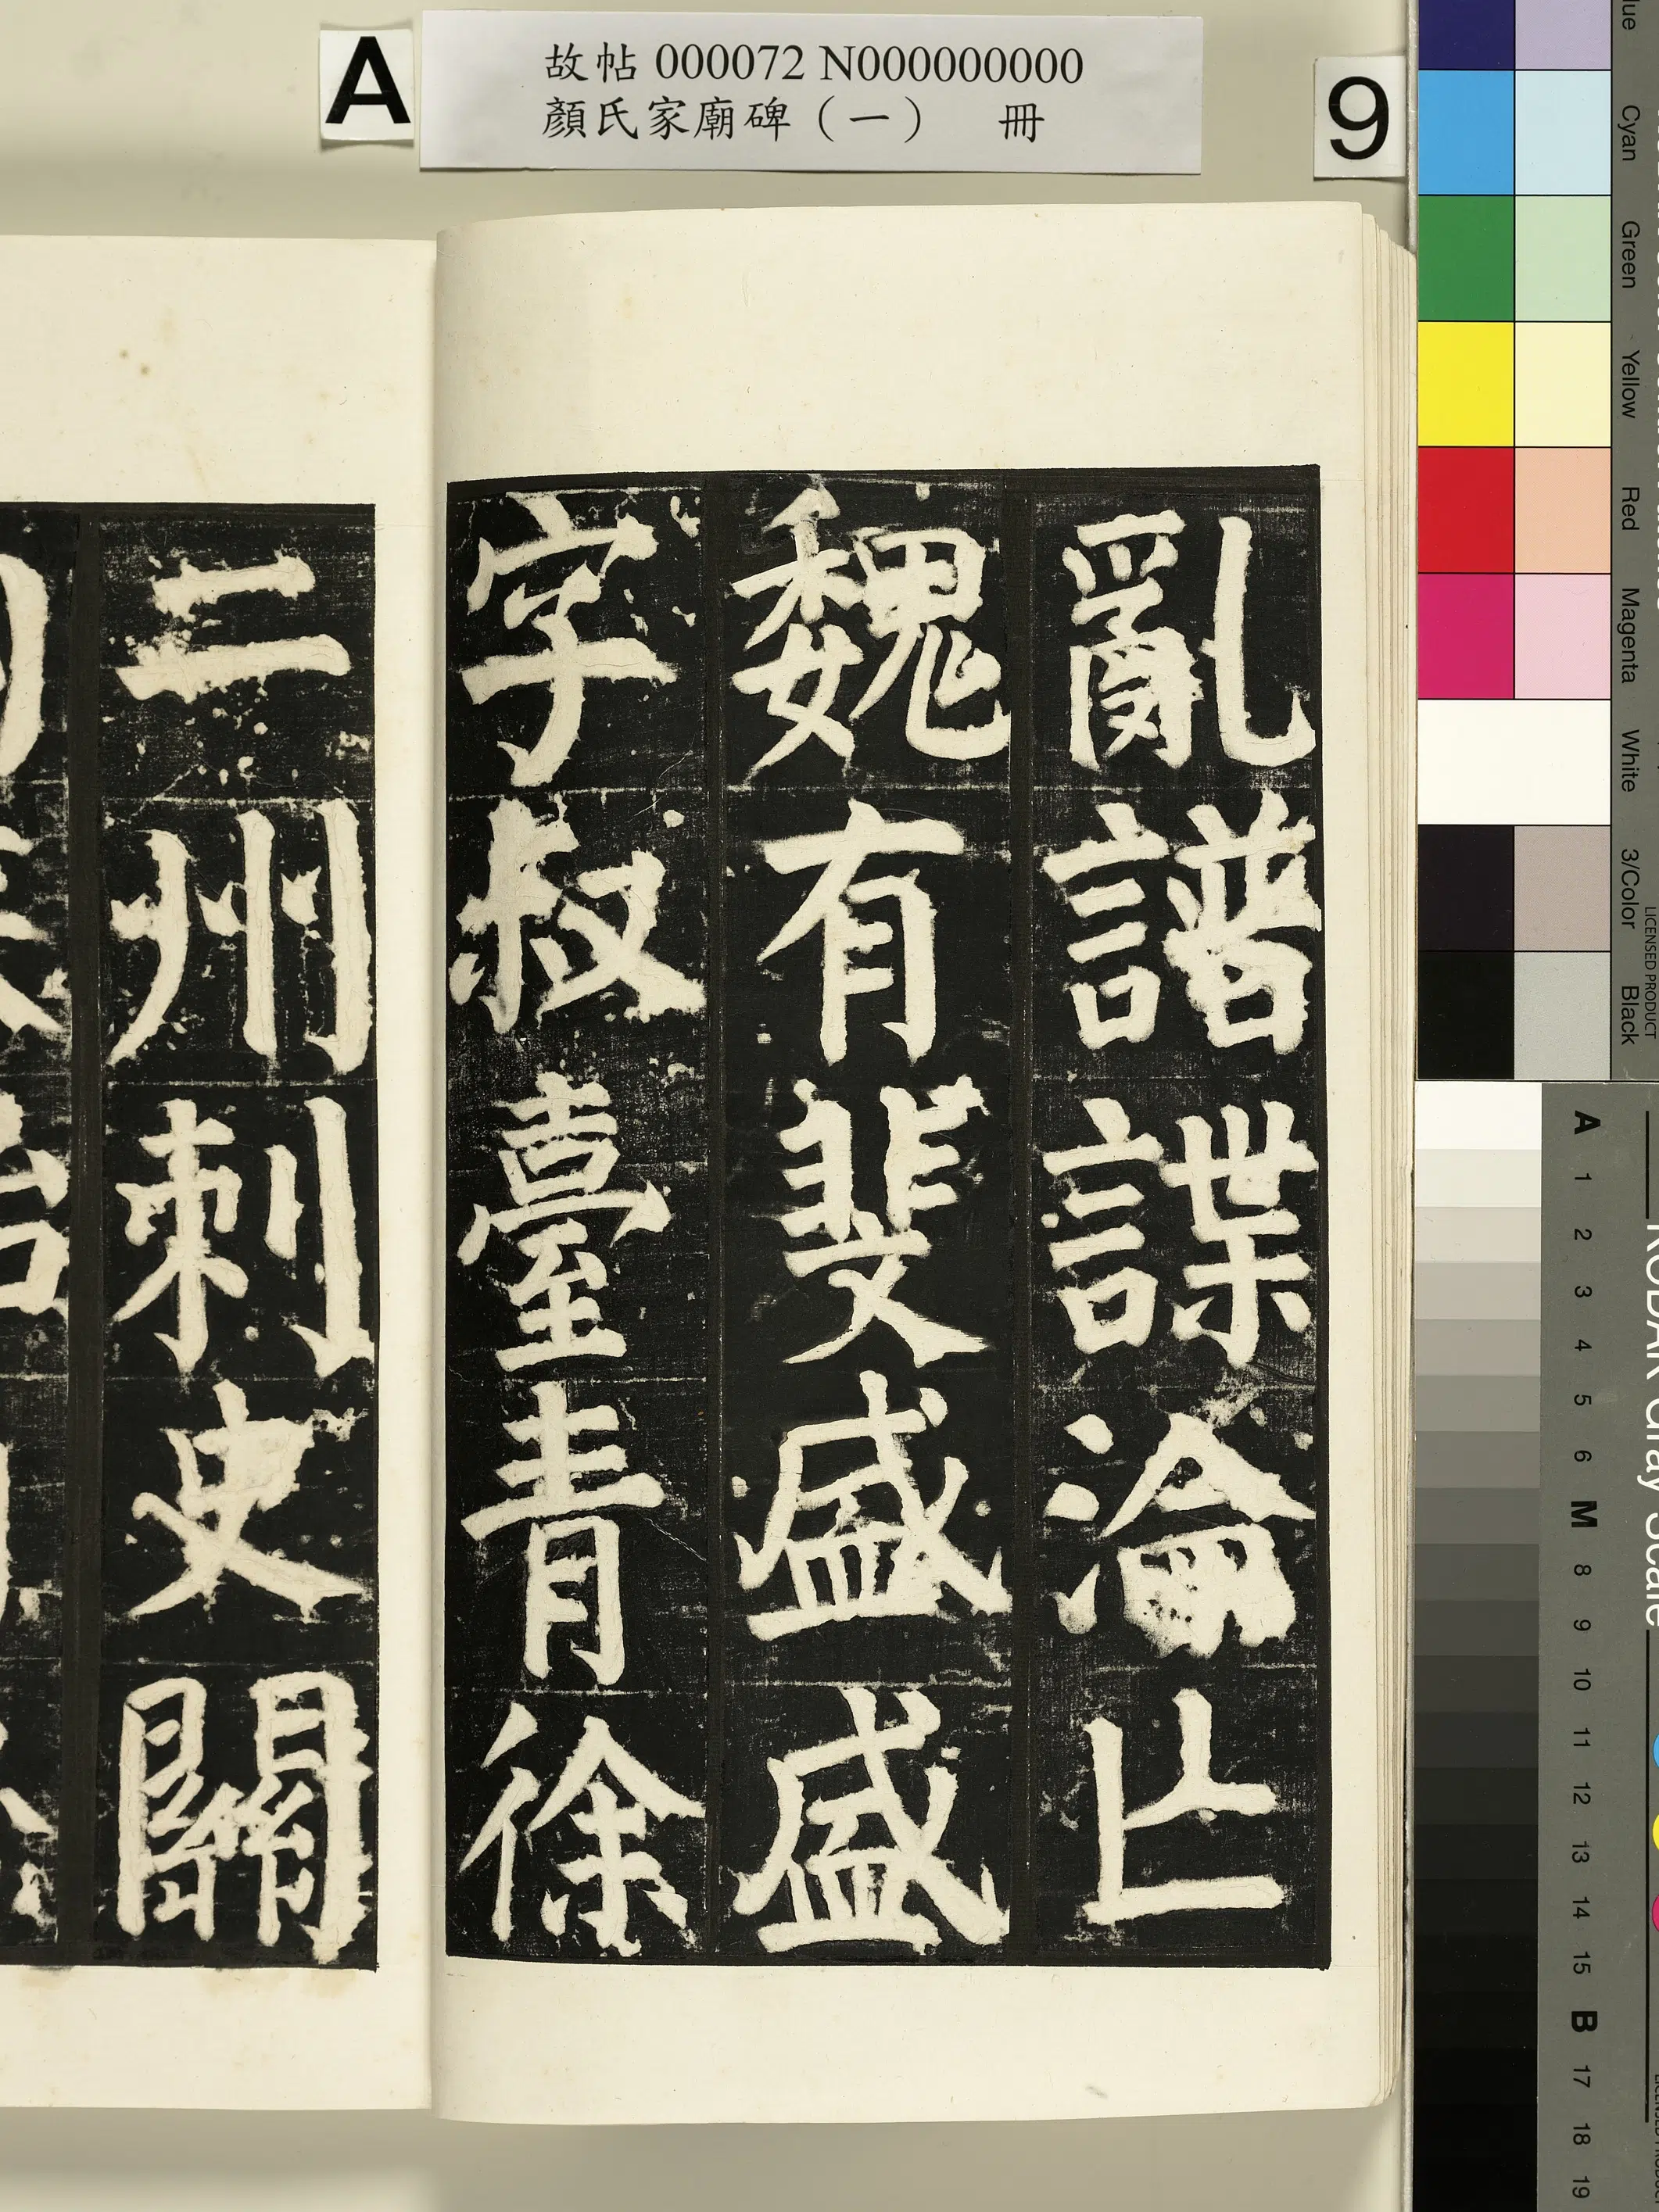 A
故帖 000072 N000000000
顏氏家廟碑（一） 冊
9
亂譜諜淪亡
魏有斐盛盛
字叔臺青徐
二州刺史關
Cyan Green Yellow Red Magenta White 3/Color Black
LICENSED PRODUCT
KODAK Gray Scale
A 1 2 3 4 5 6 M 8 9 10 11 12 13 14 15 B 17 18 19